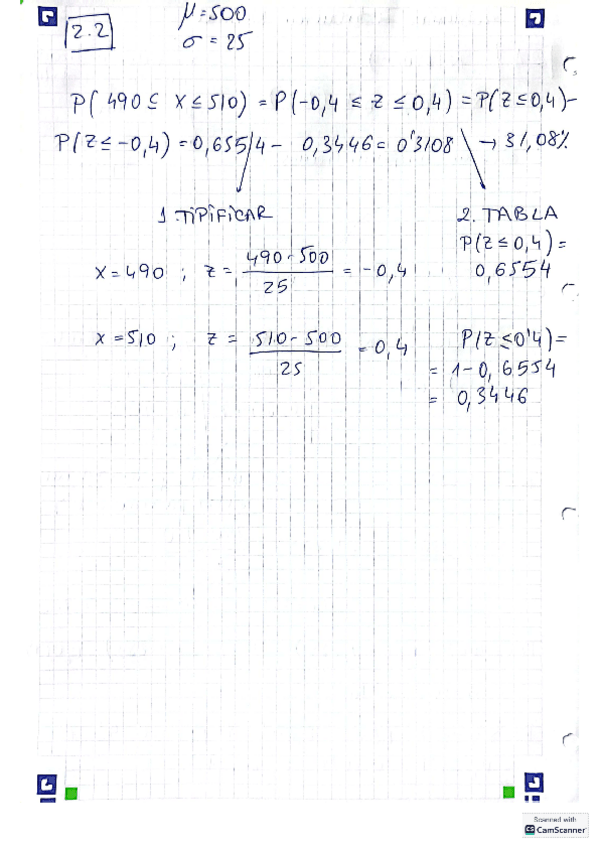 2.2
μ=500
σ=25
P(490≤ X≤510) = P(-0,4 ≤ Z ≤ 0,4) = P(Z≤0,4)-
P(Z≤-0,4) = 0,6554 - 0,3446 = 0'3108 → 31,08%
1 TIPIFICAR
2. TABLA
P(Z≤0,4)=
0,6554
x=490 ; Z= 490-500 / 25 = -0,4
x=510 ; Z = 510-500 / 25 = 0,4
P(Z≤0'4)=
= 1-0,6554
= 0,3446
Scanned with
CS CamScanner